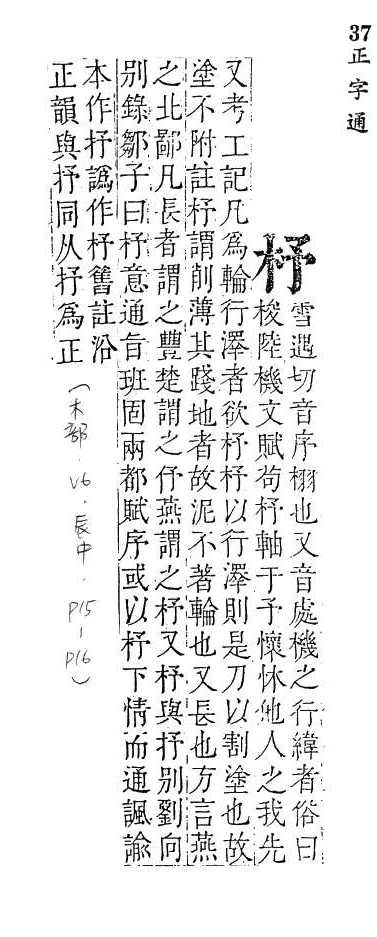 37
正字通
杼
雪遇切音序栩也又音處機之行緯者俗曰
梭陸機文賦茍杼軸于予懷怵他人之我先
又考工記凡爲輪行澤者欲杼杼以行澤則是刀以割塗也故
塗不附註杼謂削薄其踐地者故泥不著輪也又長也方言燕
之北鄙凡長者謂之豐楚謂之伃燕謂之杼又杼與抒别劉向
别錄鄒子曰杼意通旨班固兩都賦序或以杼下情而通諷諭
本作抒譌作杼舊註沿
正韻與抒同从抒爲正
(木部．V6．辰中．P15-P16)